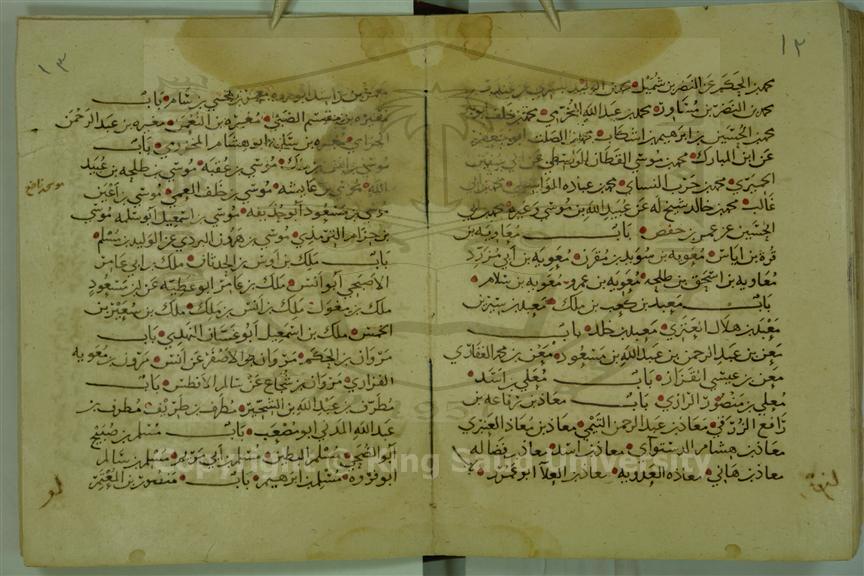 ١٢
محمد بن الحكم عن النضر بن شميل محمد بن الوليد
محمد بن النضر بن مساور محمد بن عبد الله المخرمي محمد بن خلف
محمد بن الحسين بن ابرهيم بن اشكاب محمد بن الصلت ابو
عن ابن المبارك محمد بن موسي القطان الواسطي عن
الحميري محمد بن حرب النسائي محمد بن عباده الواسطي محمد بن
غالب محمد بن خالد شيخ له عن عبيد الله بن موسي وغيره محمد بن
الحسين عن عمر بن حفص باب معاويه بن
قرة بن اياس معويه بن سويد بن مقرن معويه بن أبي مزرد
معاويه بن اسحق بن طلحه معويه بن عمرو معويه بن سلام
باب معبد بن كعب بن ملك معبد بن سيرين
معبد بن هلال العنزي معبد بن خلد باب
معن بن عبد الرحمن بن عبد الله بن مسعود معن بن محمد الغفاري
معن بن عيسي القزاز باب معلي بن اسد
معلي بن منصور الرازي باب معاذ بن رفاعه بن
رافع الزرقي معاذ بن عبد الرحمن التيمي معاذ بن معاذ العنبري
معاذ بن هشام الدستوائي معاذ بن اسد معاذ بن فضاله
معاذ بن هاني معاذه العدويه معاذ بن العلا ابو غسان
١٣
معمر بن راشد ابو عروه معمر بن يحيي بن سام باب
مغيره بن مقسم الضبي مغيره بن النعمن مغيره بن عبد الرحمن
الحزامي مغيره بن سلمه ابو هشام المخزومي باب
موسي بن انس بن ملك موسي بن عقبه موسي بن طلحه بن عبيد
الله موسي بن ابي عايشه موسي بن خلف العمي موسي بن اعين
موسي بن مسعود أبو حذيفه موسي بن اسمعيل ابو سلمه موسي
بن حزام الترمذي موسي بن هرون البردي عن الوليد بن مسلم
باب ملك بن اوس بن الحدثان ملك بن ابي عامر
الاصبحي ابو انس ملك بن عامر ابو عطيه عن ابن مسعود
ملك بن مغول ملك بن انس بن ملك ملك بن سعير بن
الخمس ملك بن اسمعيل ابو غسان النهدي باب
مروان بن الحكم مروان الاصفر عن انس مروان بن معويه
الفزاري مروان بن شجاع عن سالم الافطس باب
مطرف بن عبد الله بن الشخير مطرف بن طريف مطرف بن
عبد الله المدني ابو مصعب باب مسلم بن صبيح
أبو الضحي مسلم البطين مسلم بن أبي مريم مسلم بن سالم
أبو فروه مسلم بن ابرهيم باب منصور بن المعتمر
Copyright © King Saud University
1957